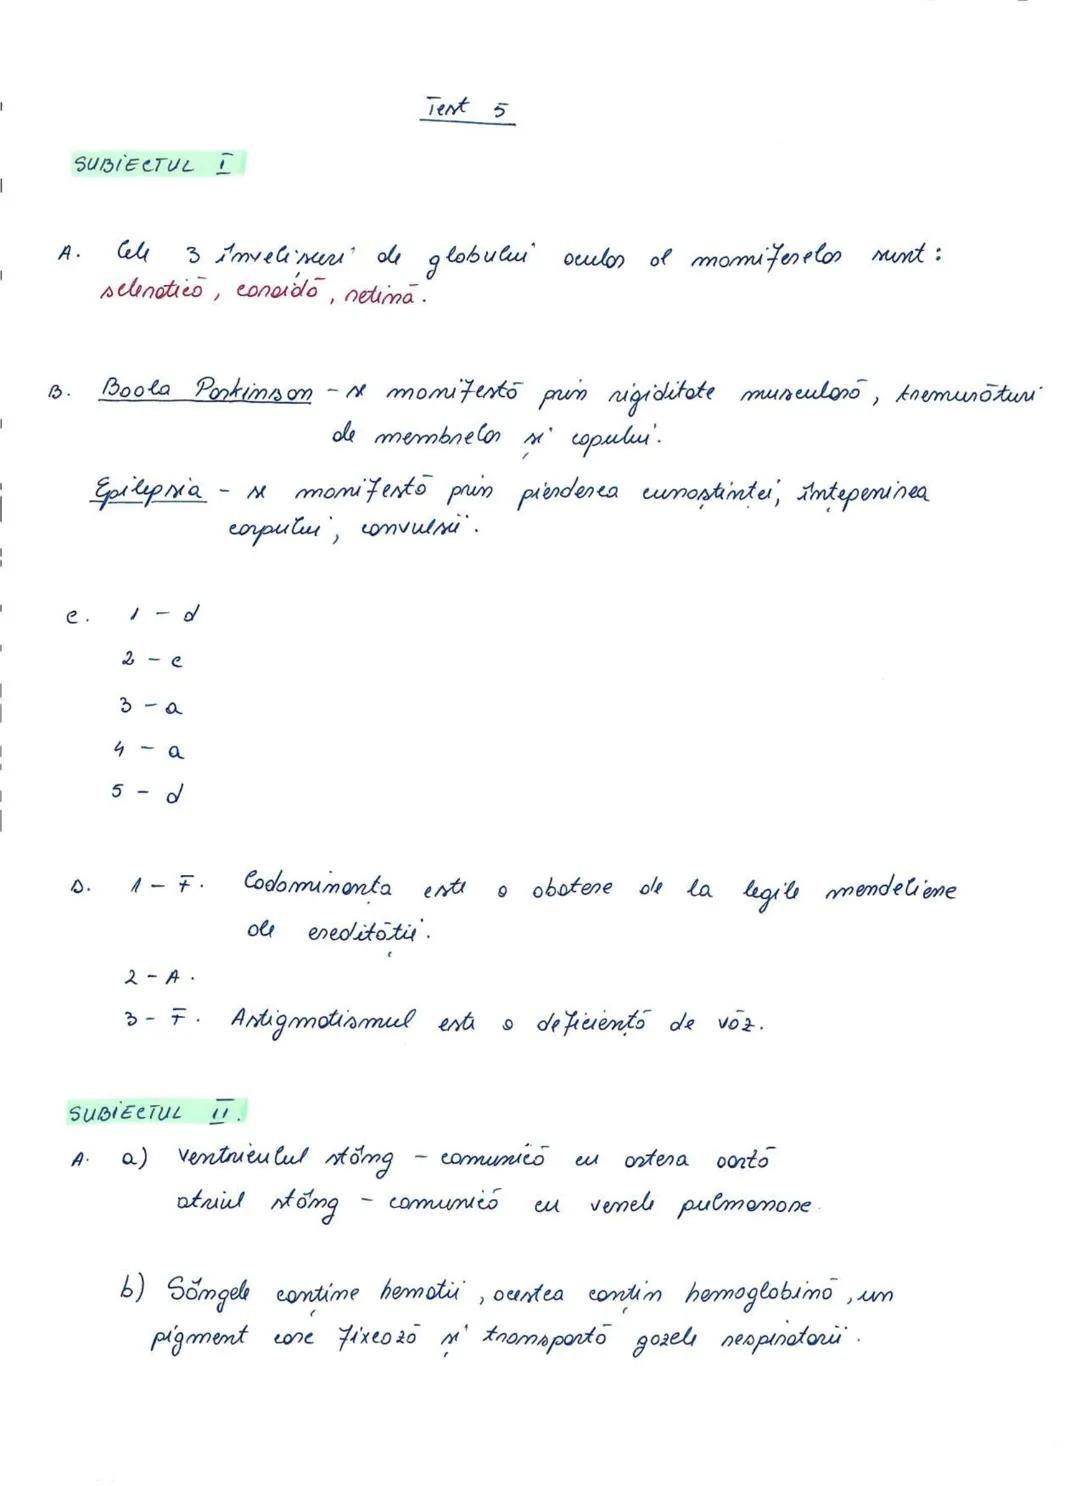 Test 5
SUBIECTUL I
A. Cele 3 învelișuri ale globului ocular al mamiferelor sunt:
sclerotică, coroidă, retină.
B. Boala Parkinson - se manifestă prin rigiditate musculară, tremurături
ale membrelor și capului.
Epilepsia - se manifestă prin pierderea cunoștinței, înțepenirea
corpului, convulsii.
C. 1 - d
2 - c
3 - a
4 - a
5 - d
D. 1 - F. Codominanța este o abatere de la legile mendeliene
ale eredității.
2 - A.
3 - F. Astigmatismul este o deficiență de văz.
SUBIECTUL II.
A. a) ventriculul stâng - comunică cu artera aortă
atriul stâng - comunică cu venele pulmonare.
b) Sângele conține hematii, acestea conțin hemoglobină, un
pigment care fixează și transportă gazele respiratorii.